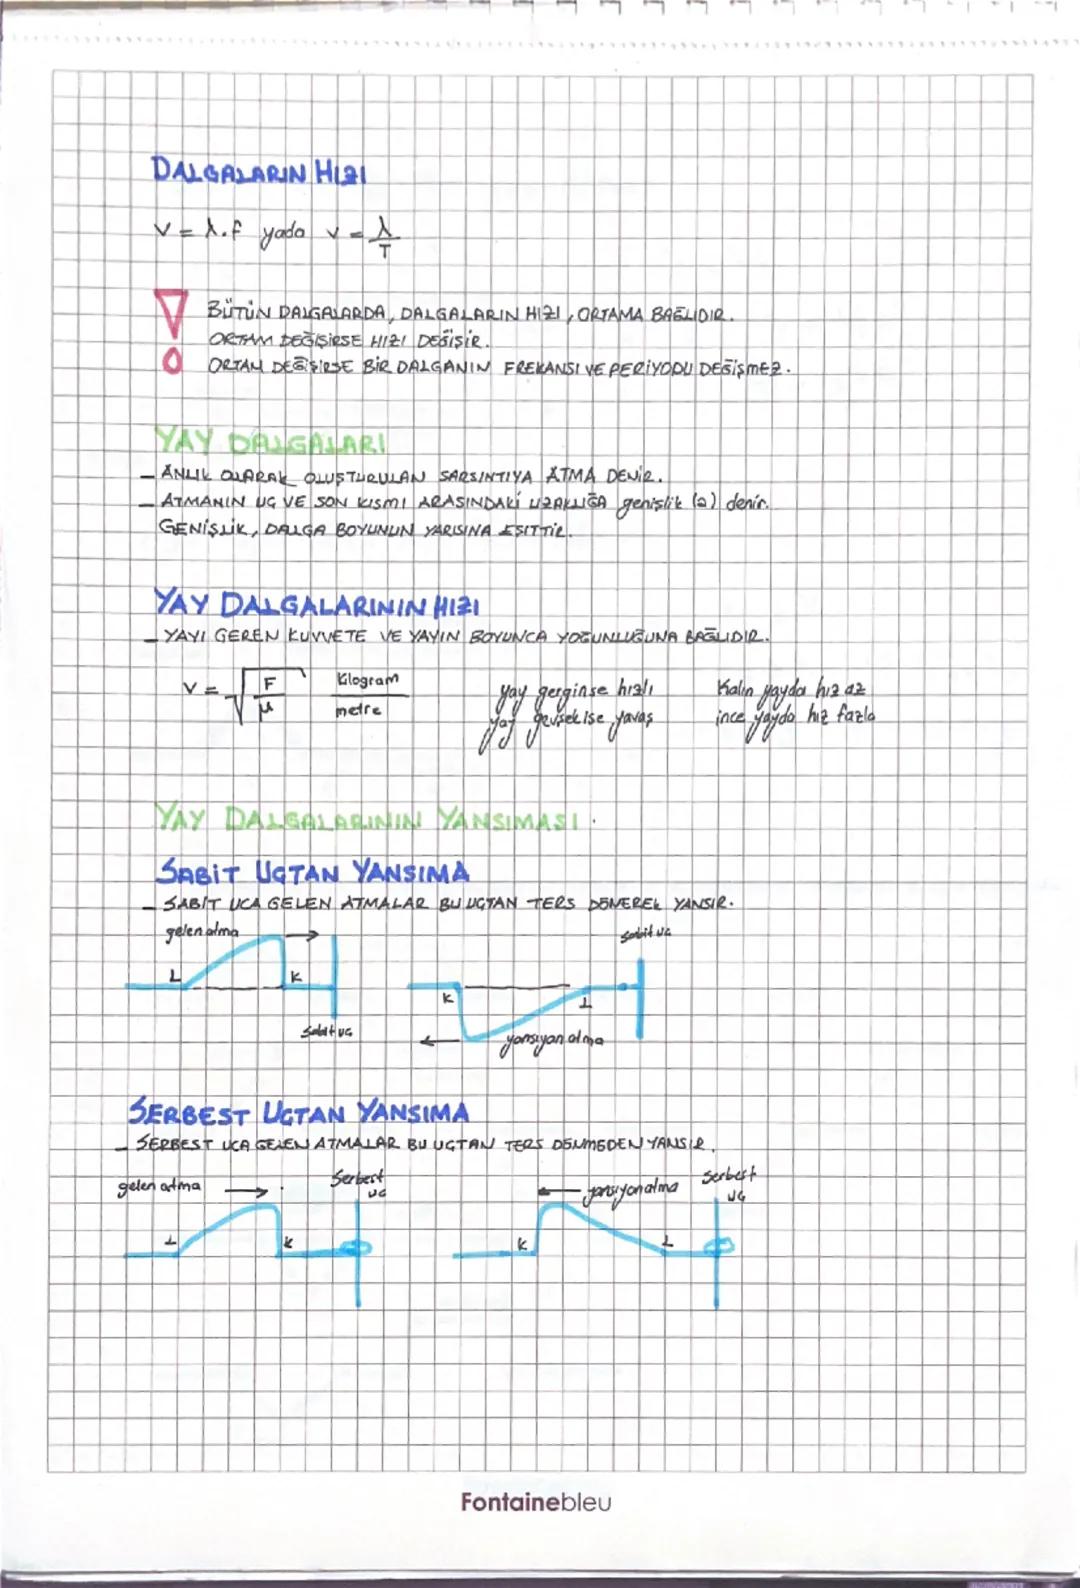 DALGALARIN HIZI
V = λ.f yada v = λ/T
BÜTÜN DALGALARDA, DALGALARIN HIZI, ORTAMA BAĞLIDIR.
ORTAM DEĞİŞİRSE HIZI DEĞİŞİR.
ORTAM DEĞİŞİRSE BİR DALGANIN FREKANSI VE PERİYODU DEĞİŞMEZ.
YAY DALGALARI
- ANLIK OLARAK OLUŞTURULAN SARSINTIYA ATMA DENİR.
- ATMANIN UÇ VE SON KISMI ARASINDAKİ UZAKLIĞA genişlik (a) denir.
GENİŞLİK, DALGA BOYUNUN YARISINA EŞİTTİR.
YAY DALGALARININ HIZI
- YAYI GEREN KUVVETE VE YAYIN BOYUNCA YOĞUNLUĞUNA BAĞLIDIR.
V = √F/μ kilogram/metre
yay gerginse hızlı
yay gevşek ise yavaş
Kalın yayda hız az
ince yayda hız fazla
YAY DALGALARININ YANSIMASI
SABİT UÇTAN YANSIMA
- SABİT UCA GELEN ATMALAR BU UÇTAN TERS DÖNEREK YANSIR.
gelen atma
sabit uç
L
K
K
L
Sabit uç
yansıyan atma
SERBEST UÇTAN YANSIMA
- SERBEST UCA GELEN ATMALAR BU UÇTAN TERS DÖNMEDEN YANSIR.
gelen atma
Serbest uç
yansıyan atma
Serbest uç
L
K
K
L
Fontainebleu